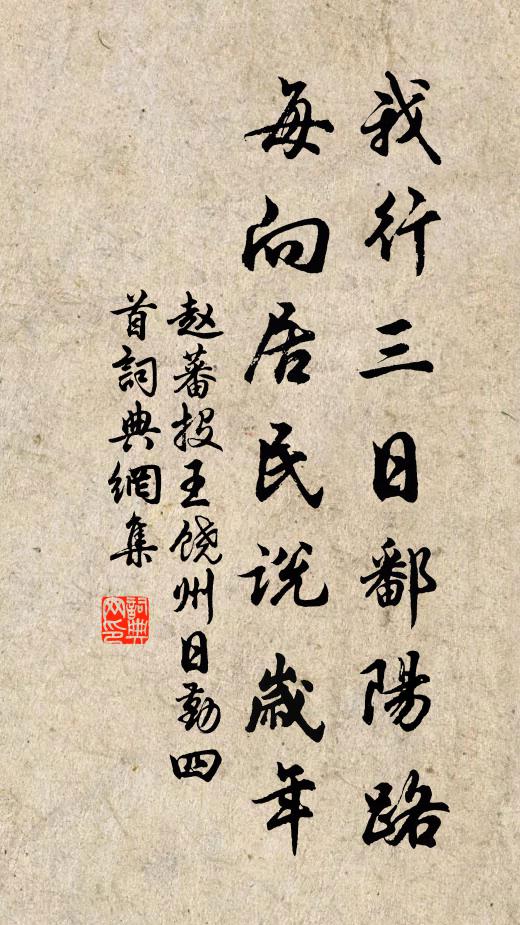 我行三日鄱陽路
每向居民説歲年
赵蕃投王饶州日勤四
首詞典網集
詞典
网印